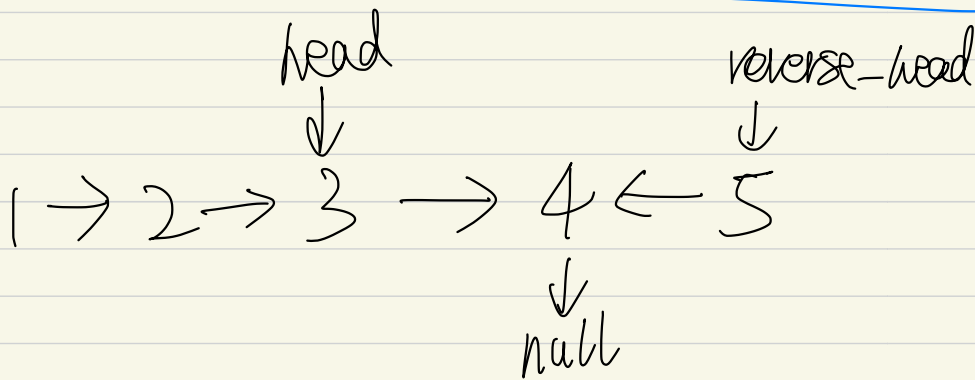 head reverse_head
1 → 2 → 3 → 4 ← 5
null